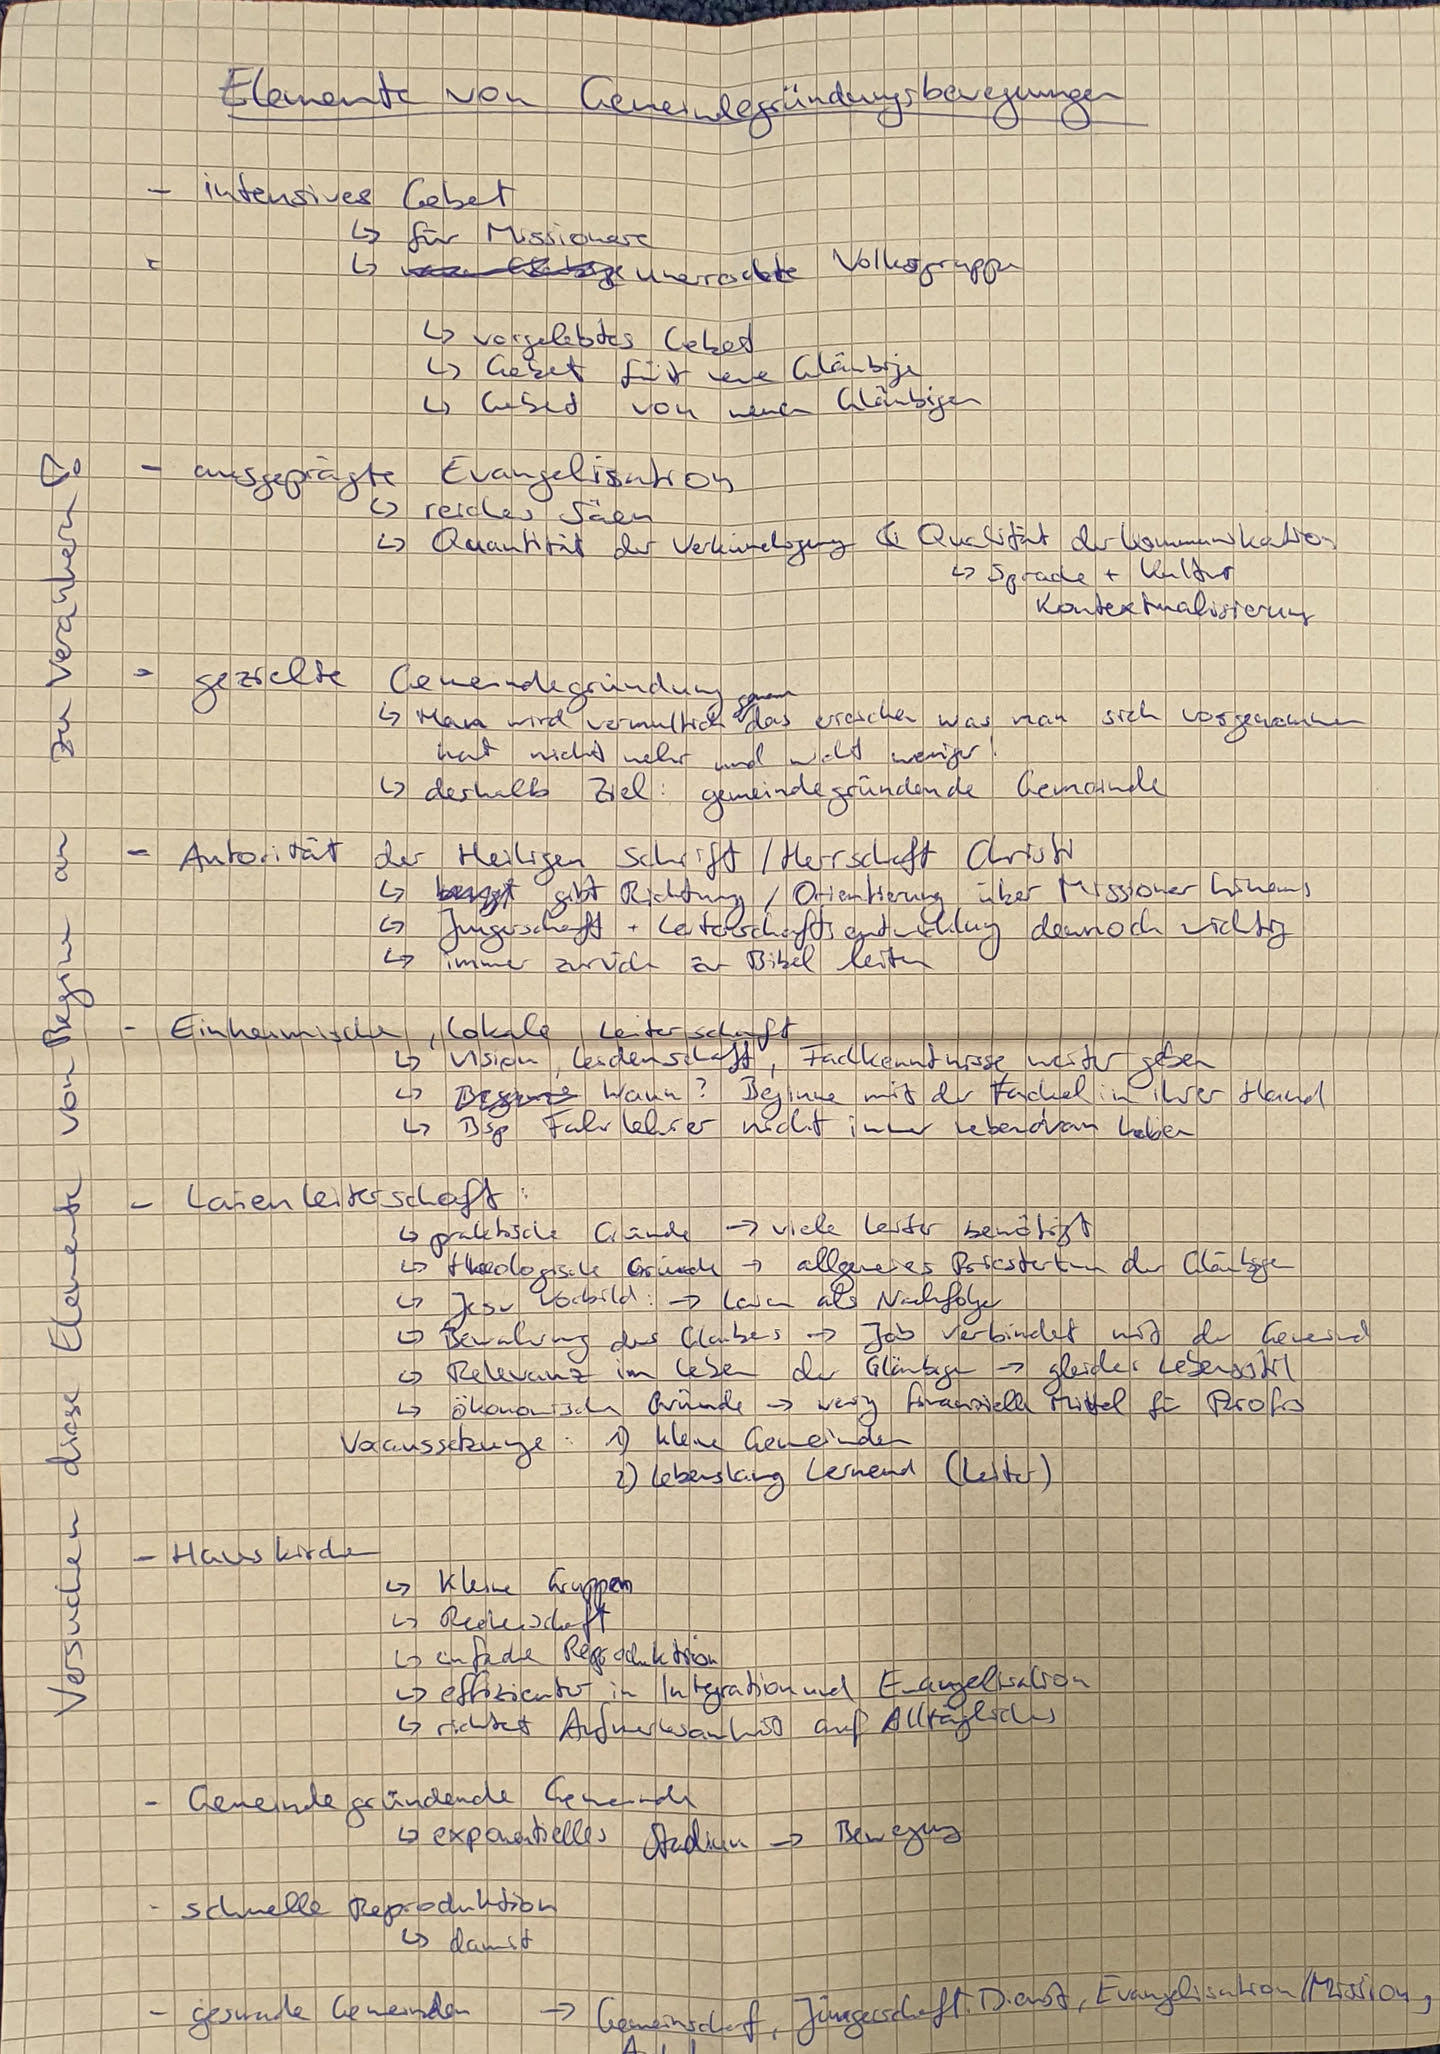 Elemente von Gemeindegründungsbewegungen
- intensives Gebet
↳ für Missionare
↳ unerreichte Volksgruppe
↳ vorgelebtes Gebet
↳ Gebet für neue Gläubige
↳ Gebet von neuen Gläubigen
- ausgeprägte Evangelisation
↳ reiches Säen
↳ Quantität der Verkündigung & Qualität der Kommunikation
↳ Sprache + Kultur
Kontextualisierung
- gezielte Gemeindegründung
↳ Man wird vermutlich genau das erreichen was man sich vorgenommen
hat nicht mehr und nicht weniger!
↳ deshalb Ziel: gemeindegründende Gemeinde
- Autorität der Heiligen Schrift / Herrschaft Christi
↳ gibt Richtung / Orientierung über Missionar hinaus
↳ Jüngerschaft + Leiterschaftsentwicklung dennoch wichtig
↳ immer zurück zur Bibel leiten
- Einheimische, lokale Leiterschaft
↳ Vision, Leidenschaft, Fachkenntnisse weiter geben
↳ Wann? Beginne mit der Fackel in ihrer Hand
↳ Bsp Fahrlehrer nicht immer nebendran
- Laienleiterschaft:
↳ praktische Gründe → viele Leiter benötigt
↳ theologische Gründe → allgemeines Priestertum der Gläubigen
↳ Jesu Vorbild: → Laien als Nachfolger
↳ Bewahrung des Glaubens → Job verbindet mit der Gemeinde
↳ Relevanz im Leben der Gläubigen → gleicher Lebensstil
↳ ökonomische Gründe → wenig finanzielle Mittel für Profis
Voraussetzunge: 1) kleine Gemeinden
2) Lebenslang Lernend (Leiter)
- Hauskirchen
↳ kleine Gruppen
↳ Rechenschaft
↳ einfache Reproduktion
↳ effizienter in Integration und Evangelisation
↳ richtet Aufmerksamkeit auf Alltägliches
- Gemeindegründende Gemeinde
↳ exponentielles Stadium → Bewegung
- schnelle Reproduktion
↳ damit
- gesunde Gemeinden → Gemeinschaft, Jüngerschaft, Dienst, Evangelisation/Mission,
Versuchen diese Elemente von Beginn an zu verankern